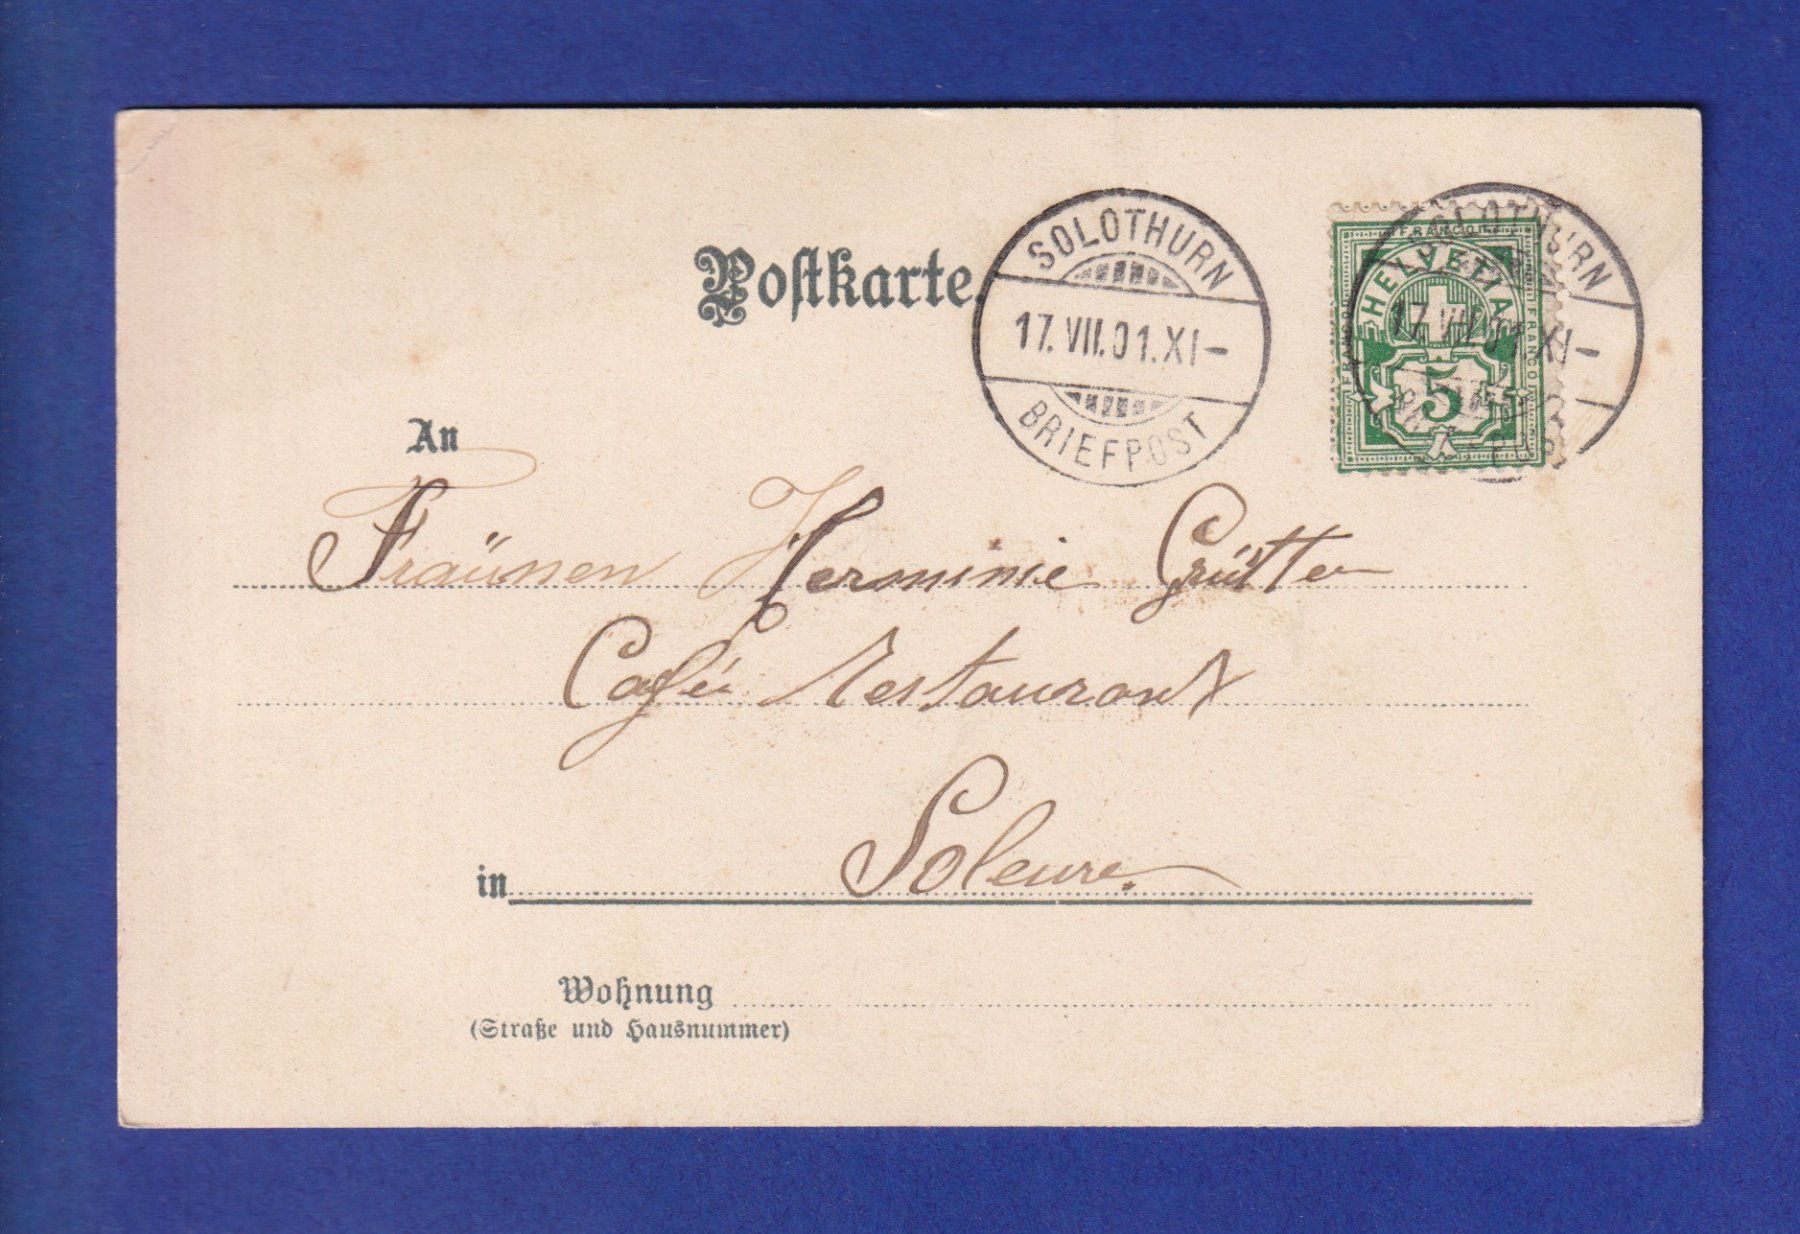 Postkarte.
SOLOTHURN
17.VII.01.XI-
BRIEFPOST
SOLOTHURN
17.VII.01.XI-
FRANCO
HELVETIA
FRANCO
FRANCO
5
An
Fraünen Herminie Grütter
Café Restaurant
in Soleure.
Wohnung
(Straße und Hausnummer)